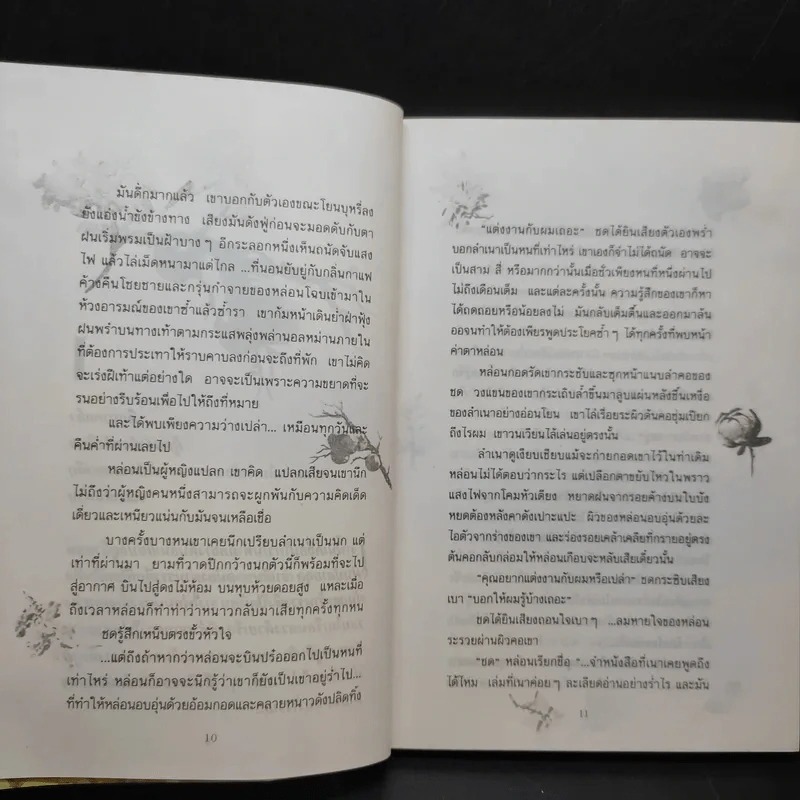 มันดึกมากแล้ว เขาบอกกับตัวเองขณะโยนบุหรี่ลง
ยังแอ่งน้ำขังข้างทาง เสียงมันดังฟู่ก่อนจะมอดดับกับตา
ฝนเริ่มพรมเป็นฝ้าบางๆ อีกระลอกหนึ่งเห็นถนัดจับแสง
ไฟ แล้วไล่เม็ดหนามาแต่ไกล ...ที่นอนยับยู่กับกลิ่นกาแฟ
ค้างคืนโชยชายและกรุ่นกำจายของหล่อนโฉบเข้ามาใน
ห้วงอารมณ์ของเขาซ้ำแล้วซ้ำรา เขาก้มหน้าเดินย่ำฝ่าฟุ้ง
ฝนพรำบนทางเท้าตามกระแสพลุ่งพล่านอลหม่านภายใน
ที่ต้องการประเทาให้ราบคาบลงก่อนจะถึงที่พัก เขาไม่คิด
จะเร่งฝีเท้าแต่อย่างใด อาจจะเป็นเพราะความขยาดที่จะ
รนอย่างรีบร้อนเพื่อไปให้ถึงที่หมาย
และได้พบเพียงความว่างเปล่า... เหมือนทุกวันและ
คืนค่ำที่ผ่านเลยไป
หล่อนเป็นผู้หญิงแปลก เขาคิด แปลกเสียจนเขานึก
ไม่ถึงว่าผู้หญิงคนหนึ่งสามารถจะผูกพันกับความคิดเด็ด
เดี่ยวและเหนียวแน่นกับมันจนเหลือเชื่อ
บางครั้งบางหนเขาเคยนึกเปรียบลำเนาเป็นนก แต่
เท่าที่ผ่านมา ยามที่วาดปีกกว้างนกตัวนี้ก็พร้อมที่จะไป
สู่อากาศ บินไปสู่ดงไม้ห้อม บนหุบห้วยดอยสูง แหละเมื่อ
ถึงเวลาหล่อนก็ทำท่าว่าหนาวกลับมาเสียทุกครั้งทุกหน
ชดรู้สึกเหน็บตรงขั้วหัวใจ
...แต่ถึงถ้าหากว่าหล่อนจะบินปร๋อออกไปเป็นหนที่
เท่าไหร่ หล่อนก็อาจจะนึกรู้ว่าเขาก็ยังเป็นเขาอยู่ร่ำไป...
ที่ทำให้หล่อนอบอุ่นด้วยอ้อมกอดและคลายหนาวดังปลิดทิ้ง
10
"แต่งงานกับผมเถอะ" ชดได้ยินเสียงตัวเองพร่ำ
บอกลำเนาเป็นหนที่เท่าไหร่ เขาเองก็จำไม่ได้ถนัด อาจจะ
เป็นสาม สี่ หรือมากกว่านั้นเมื่อชั่วเพียงหนที่หนึ่งผ่านไป
ไม่ถึงเดือนเต็ม และแต่ละครั้งนั้น ความรู้สึกของเขาก็หา
ได้ถดถอยหรือน้อยลงไม่ มันกลับเต็มตื้นและออกมาล้น
ออจนทำให้ต้องเพียรพูดประโยคซ้ำๆ ได้ทุกครั้งที่พบหน้า
ค่าตาหล่อน
หล่อนกอดรัดเขากระชับและซุกหน้าแนบลำคอของ
ชด วงแขนของเขากระเถิบล้ำขึ้นมาลูบแผ่นหลังชื้นเหงื่อ
ของลำเนาอย่างอ่อนโยน เขาไล่เรื่อยระผิวต้นคอชุ่มเปียก
ถึงไรผม เขาวนเวียนไล้เล่นอยู่ตรงนั้น
ลำเนาดูเงียบเชียบแม้จะก่ายกอดเขาไว้ในท่าเดิม
หล่อนไม่ได้ตอบว่ากระไร แต่เปลือกตาขยับไหวในพราว
แสงไฟจากโคมหัวเตียง หยาดฝนจากรอยค้างบนใบบัง
หยดต้องหลังคาดังเปาะแปะ ผิวของหล่อนอบอุ่นด้วยละ
ไอตัวจากร่างของเขา และร่องรอยเคล้าเคลียที่กรายอยู่ตรง
ต้นคอกลับกล่อมให้หล่อนเกือบจะหลับเสียเดี๋ยวนั้น
"คุณอยากแต่งงานกับผมหรือเปล่า" ชดกระซิบเสียง
เบา "บอกให้ผมรู้บ้างเถอะ"
ชดได้ยินเสียงถอนใจเบาๆ ...ลมหายใจของหล่อน
ระรวยผ่านผิวคอเขา
"ชด" หล่อนเรียกชื่อ "...จำหนังสือที่เนาเคยพูดถึง
ได้ไหม เล่มที่เนาค่อยๆ ละเลียดอ่านอย่างร่ำไร และมัน
11